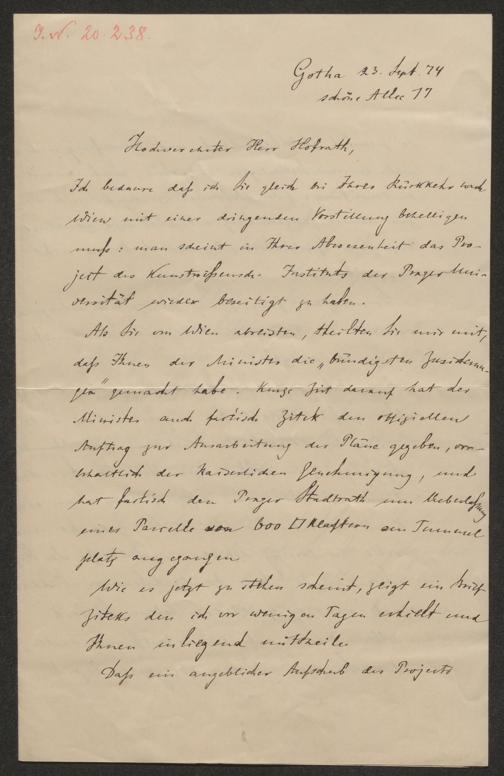 J.N. 20.238.
Gotha 23. Sept. 74
schöne Allee 17
Hochverehrter Herr Hofrath,
Ich bedaure daß ich Sie gleich bei Ihrer Rückkehr nach
Wien mit einer dringenden Vorstellung behelligen
muß: man scheint in Ihrer Abwesenheit das Pro-
jekt des Kunstwissensch. Instituts der Prager Uni-
versität wieder beseitigt zu haben.
Als Sie von Wien abreisten, theilten Sie mir mit,
daß Ihnen der Minister die „bündigsten Zusicherun-
gen" gemacht habe. Kurze Zeit darauf hat der
Minister auch factisch Zitek den offiziellen
Auftrag zur Ausarbeitung der Pläne gegeben, vor-
behaltlich der kaiserlichen Genehmigung, und
hat factisch den Prager Stadtrath um Ueberlaßung
einer Parcelle von 600 □ Klaftern am Tummel
platz angegangen
Wie es jetzt zu stehen scheint, zeigt ein Brief
Ziteks den ich vor wenigen Tagen erhielt und
Ihnen inliegend mittheile.
Daß ein angeblicher Aufschub des Projects